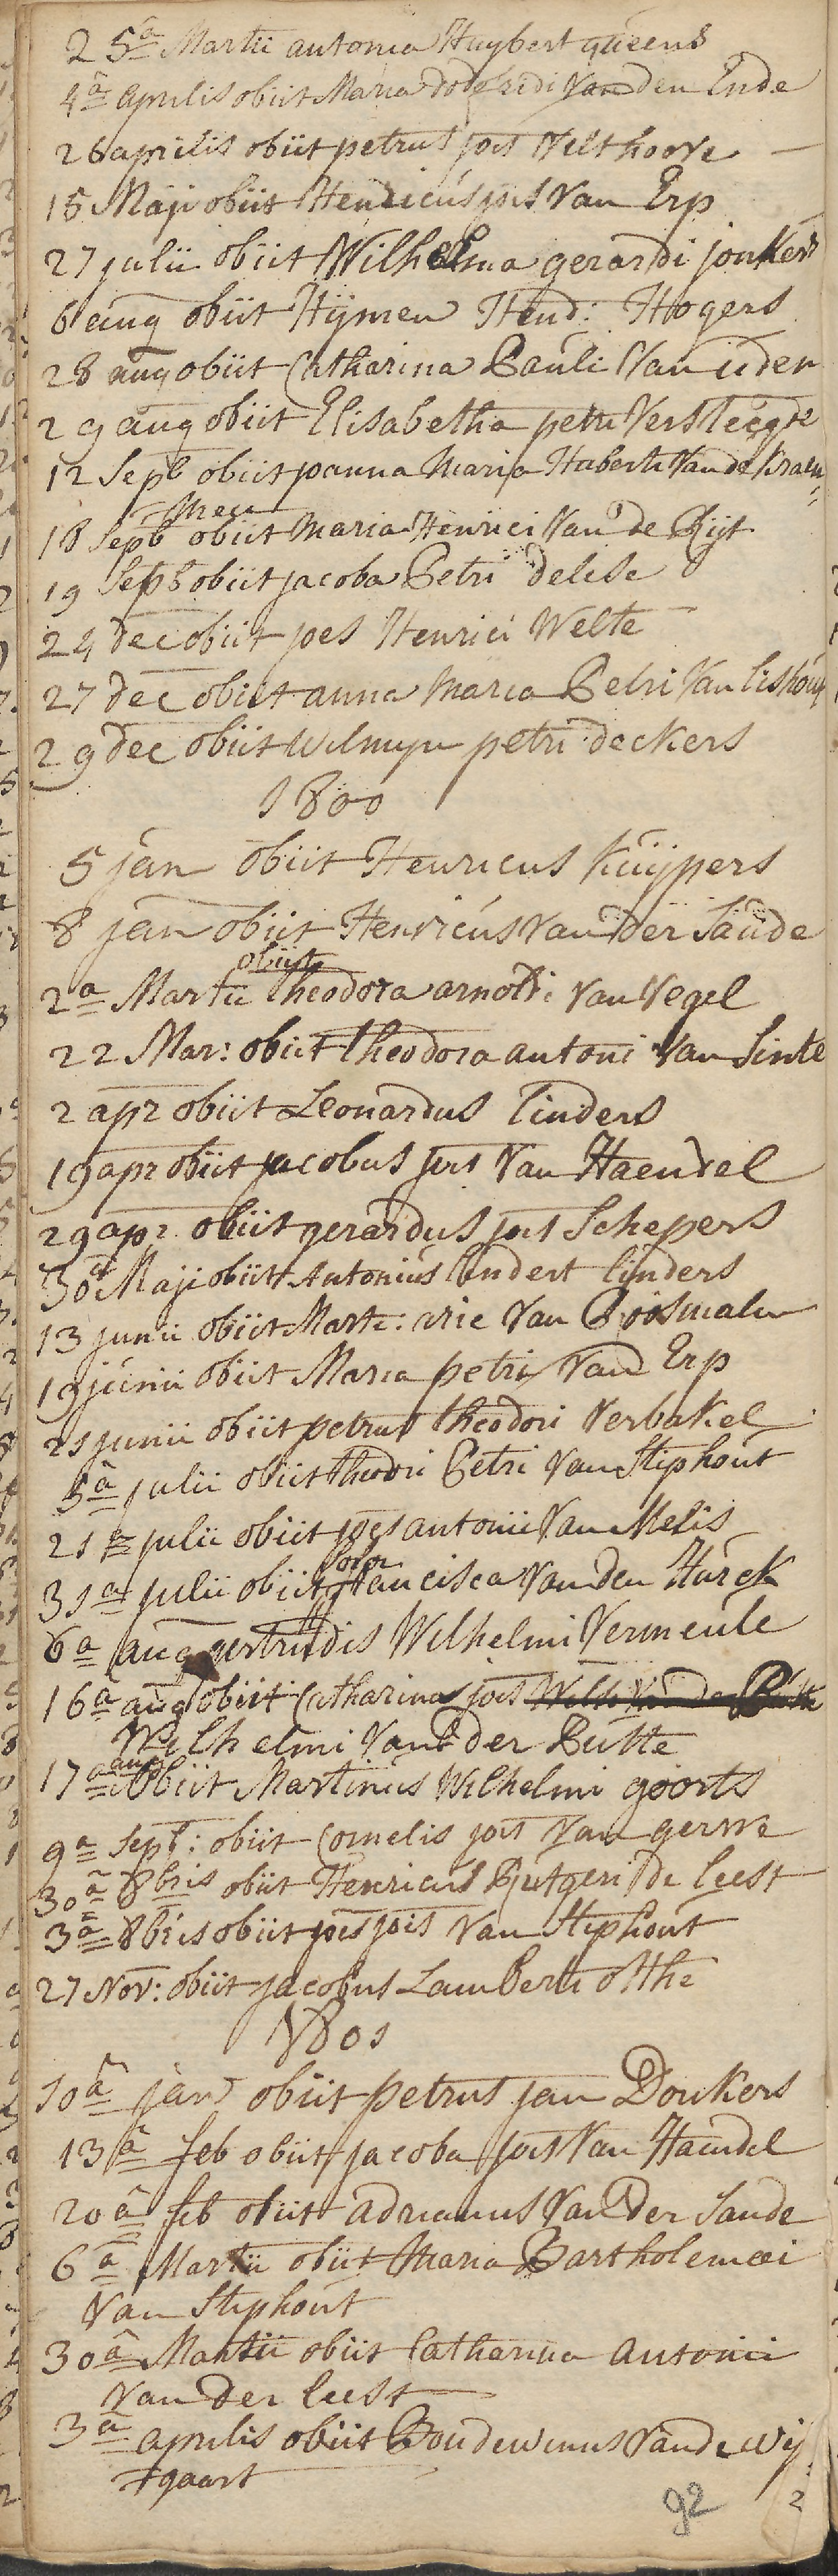 25a Martii antonia Huybert queens
4a aprilis obiit Maria Godefridi van den Ende
26 aprilis obiit petrus jois Velthoove
15 Maji obiit Henricus jois Van Erp
27 julii obiit Wilhelma gerardi jonkers
6 aug obiit Hijmen Hend: Hogers
28 aug obiit Catharina Pauli Van uden
29 aug obiit Elisabetha petri Versteegde
12 Sepb obiit joanna Maria Huberti Van de Kraen
18 Sepb obiit Maria Henrici Van de Rijt
19 Sepb obiit jacoba Petri delise
24 dec obiit joes Henrici Welte
27 dec obiit anna Maria Petri Van lishout
29 dec obiit Wilmijn petri deckers
1800
5 jan obiit Henricus Kuijpers
8 jan obiit Henricus van der Sande
obiit
2a Martii Theodora arnoldi Van Vegel
22 Mar: obiit theodora antoni Van Sinte
2 apr obiit Leonardus linders
19 apr obiit jacobus jois Van Haendel
29 apr. obiit gerardus jois Schepers
30a Maji obiit Antonius lindert linders
13 junii obiit Marte: arie Van Rosmalen
19 junii obiit Maria petri Van Erp
21 junii obiit petrus theodori Verbakel
5a julii obiit theodri Petri Van Stiphout
21a julii obiit joes antonii Van Melis
31a julii obiit francisca Van den Hurck
6a aug gertrudis Wilhelmi Vermeule
16a aug obiit Catharina jois
Wilhelmi Van der Butte
aug
17a obiit Martinus Wilhelmi goorts
9a Sept: obiit Cornelis jois Van gerwe
30a 8bris obiit Henricus Rutgeri de leest
3a 8bris obiit joes jois Van Stiphout
27 Nov: obiit jacobus Lamberti otthe
1801
10a jan obiit petrus jan Donkers
13a feb obiit jacoba jois Van Haendel
20a feb obiit adrianus Van der Sande
6a Martii obiit Maria Bartholemaei
Van Stiphout
30a Martii obiit Catharina Antonii
Van der leest
3a aprilis obiit Boudewinus Van de wij
gaart
92
2